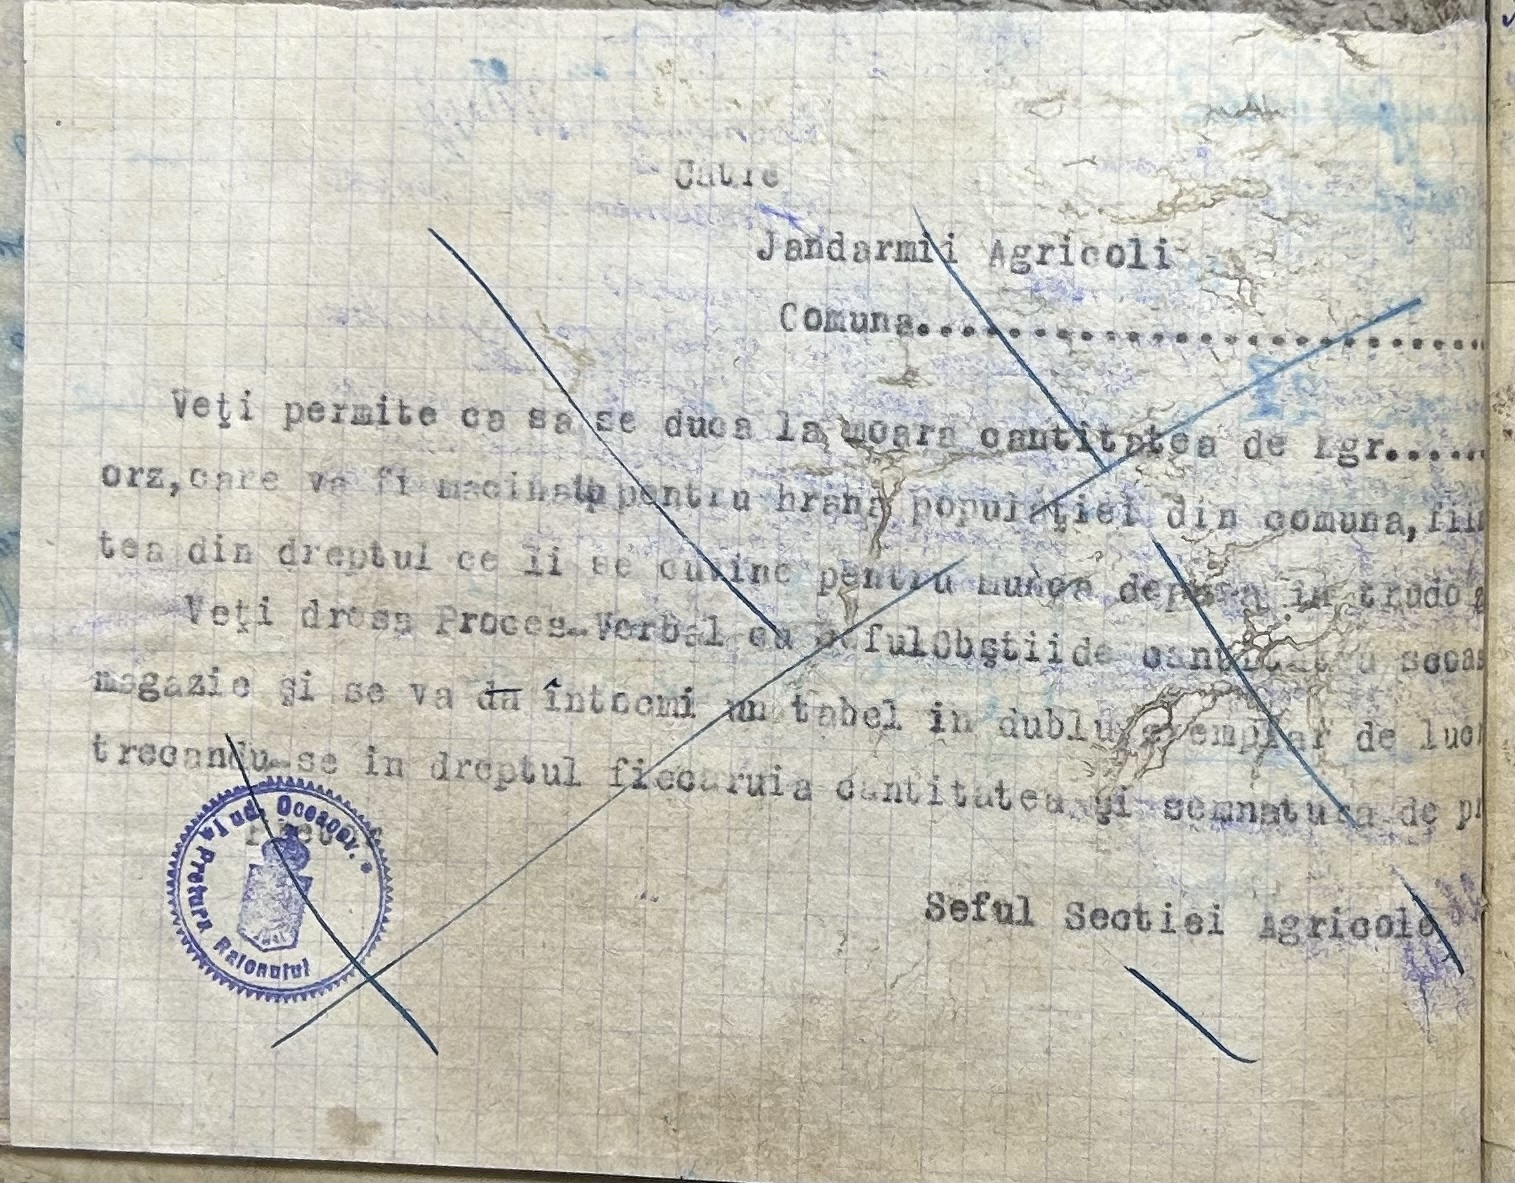 Catre
Jandarmii Agricoli
Comuna..............................
Veţi permite ca sa se duca la moara cantitatea de Kgr.....
orz, care va fi macinata pentru hrana populaţiei din comuna, fiin
tea din dreptul ce li se cuvine pentru munca depusa in trudo
Veţi dresa Proces-Verbal cu Seful Obştii de cantitatea scoas
magazie şi se va da întocmi un tabel in dublu exemplar de luc
trecandu-se in dreptul fiecaruia cantitatea şi semnatura de pr
Pretor
Pretura Raionului
Jud. Oceacov.
Seful Sectiei Agricole